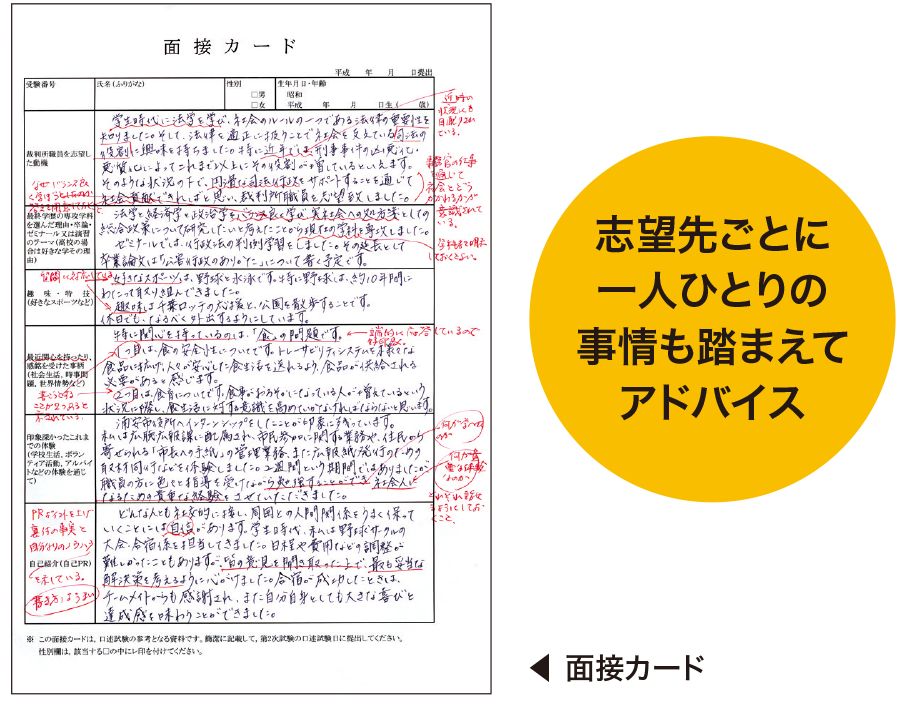 面接カード
平成　年　月　日提出
受験番号
氏名(ふりがな)
性別
□男
□女
生年月日・年齢
昭和
平成　年　月　日生(　歳)
裁判所職員を志望した動機
学生時代に法学を学び、社会のルールの一つである法律の重要性を
知りました。そして、法律を適正に扱うことで社会を支えている司法の
役割に興味を持ちました。特に近年では、刑事事件の凶悪化・
悪質化によってこれまで以上にその役割が増しているといえます。
そのような状況の下で、円滑な司法行政をサポートすることを通じて
社会貢献できればと思い、裁判所職員を志望致しました。
最終学歴の専攻学科を選んだ理由・卒論・ゼミナール又は演習のテーマ(高校の場合は好きな学科その理由)
法学と経済学と政治学をバランス良く学び、実社会への処方箋としての
総合政策について研究したいと考えたことから現在の学科を専攻しました。
ゼミナールでは、行政法の判例学習をしました。その延長として
卒業論文は「公務行政のあり方」について書く予定です。
趣味・特技
(好きなスポーツなど)
好きなスポーツは、野球と水泳です。特に野球は、約10年間に
わたって取り組んできました。
趣味は千葉ロッテの応援と、公園を散歩することです。
休日でも、なるべく外出するようにしています。
最近関心を持ったり、感銘を受けた事柄
(社会生活、時事問題、世界情勢など)
特に関心を持っているのは、「食」の問題です。
1つ目は、食の安全性についてです。トレーサビリティシステムを様々な
食品に広げ、人々が安心した食生活を送れるよう、食品が供給される
必要があると感じます。
2つ目は、食育についてです。食事がおろそかになっている人が増えているという
状況に際し、食生活に対する意識を高めていかなければならないと思います。
印象深かったこれまでの体験
(学校生活、ボランティア活動、アルバイトなどの体験を通じて)
浦安市役所へインターンシップをしたことが印象に残っています。
私は広聴広報課に配属され、市民参加に関する業務や、住民から
寄せられる「市長への手紙」の管理業務、また広報紙発行のための
取材同行などを体験しました。2週間という期間ではありましたが
職員の方に色々と指導を受けながら勉強することができ、社会人に
なるための貴重な経験をさせていただきました。
自己紹介(自己PR)
どんな人とも社交的に接し、周囲との人間関係をうまく保って
いくことには自信があります。学生時代、私は野球サークルの
大会・合宿係を担当してきました。日程や費用などの調整が
難しかったこともありますが、皆の意見を聞き取った上で、最も妥当な
解決策を考えるように心がけました。合宿が成功したときは、
チームメイトからも感謝され、また自分自身としても大きな喜びと
達成感を味わうことができました。
※ この面接カードは、口述試験の参考となる資料です。簡潔に記載して、第2次試験の口述試験日に提出してください。
性別欄は、該当する□の中にレ印を付けてください。
志望先ごとに
一人ひとりの
事情も踏まえて
アドバイス
◀ 面接カード